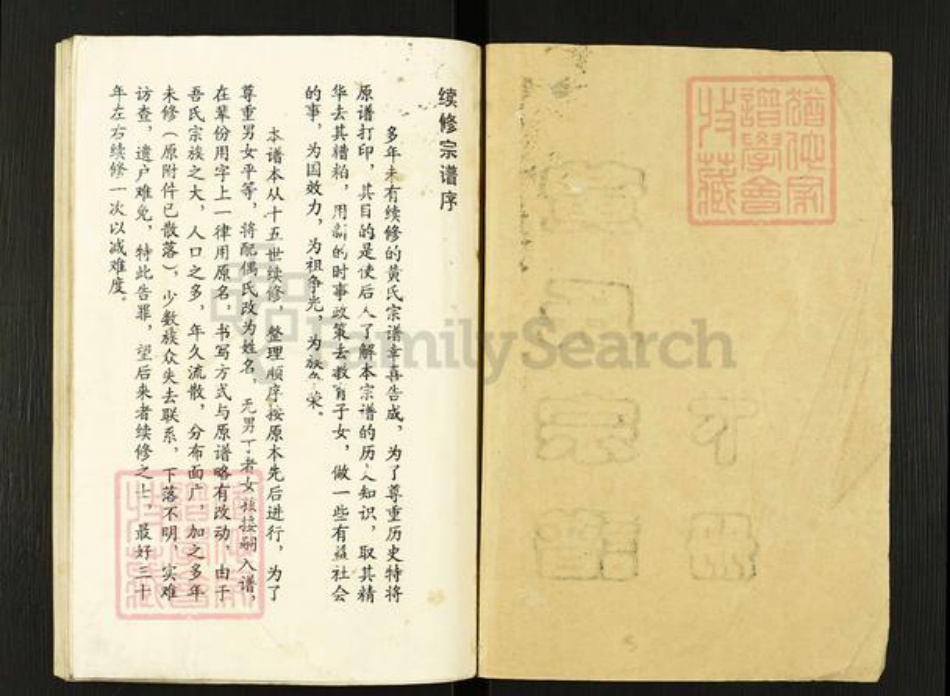 续修宗谱序
多年未有续修的黄氏宗谱幸喜告成，为了尊重历史特将
原谱打印，其目的是使后人了解本宗谱的历人知识，取其精
华去其糟粕，用新的时事政策去教育子女，做一些有益社会
的事，为国效力，为祖争光，为族众荣。
本谱本从十五世续修，整理顺序按原本先后进行，为了
尊重男女平等，将配偶氏改为姓名，无男丁者女孩接嗣入谱，
在辈份用字上一律用原名，书写方式与原谱略有改动，由于
吾氏宗族之大，人口之多，年久流散，分布面广，加之多年
未修（原附件已散落），少数族众失去联系，下落不明，实难
访查，遗户难免，特此告罪，望后来者续修之士，最好三十
年左右续修一次以减难度。
犹他家
谱学会
收藏
FamilySearch